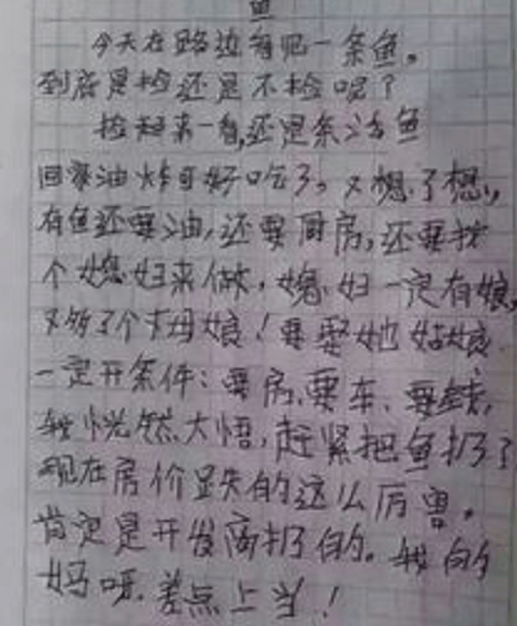 鱼
今天在路边看见一条鱼。
到底是捡还是不捡呢？
捡起来一看,还是条活鱼
回家油炸可好吃了。又想了想,
有鱼还要油,还要厨房,还要找
个媳妇来做,媳妇一定有娘,
又多了个丈母娘！要娶她姑娘
一定开条件：要房、要车、要钱,
我恍然大悟,赶紧把鱼扔了
现在房价跌的这么厉害。
肯定是开发商扔的。我的
妈呀,差点上当！